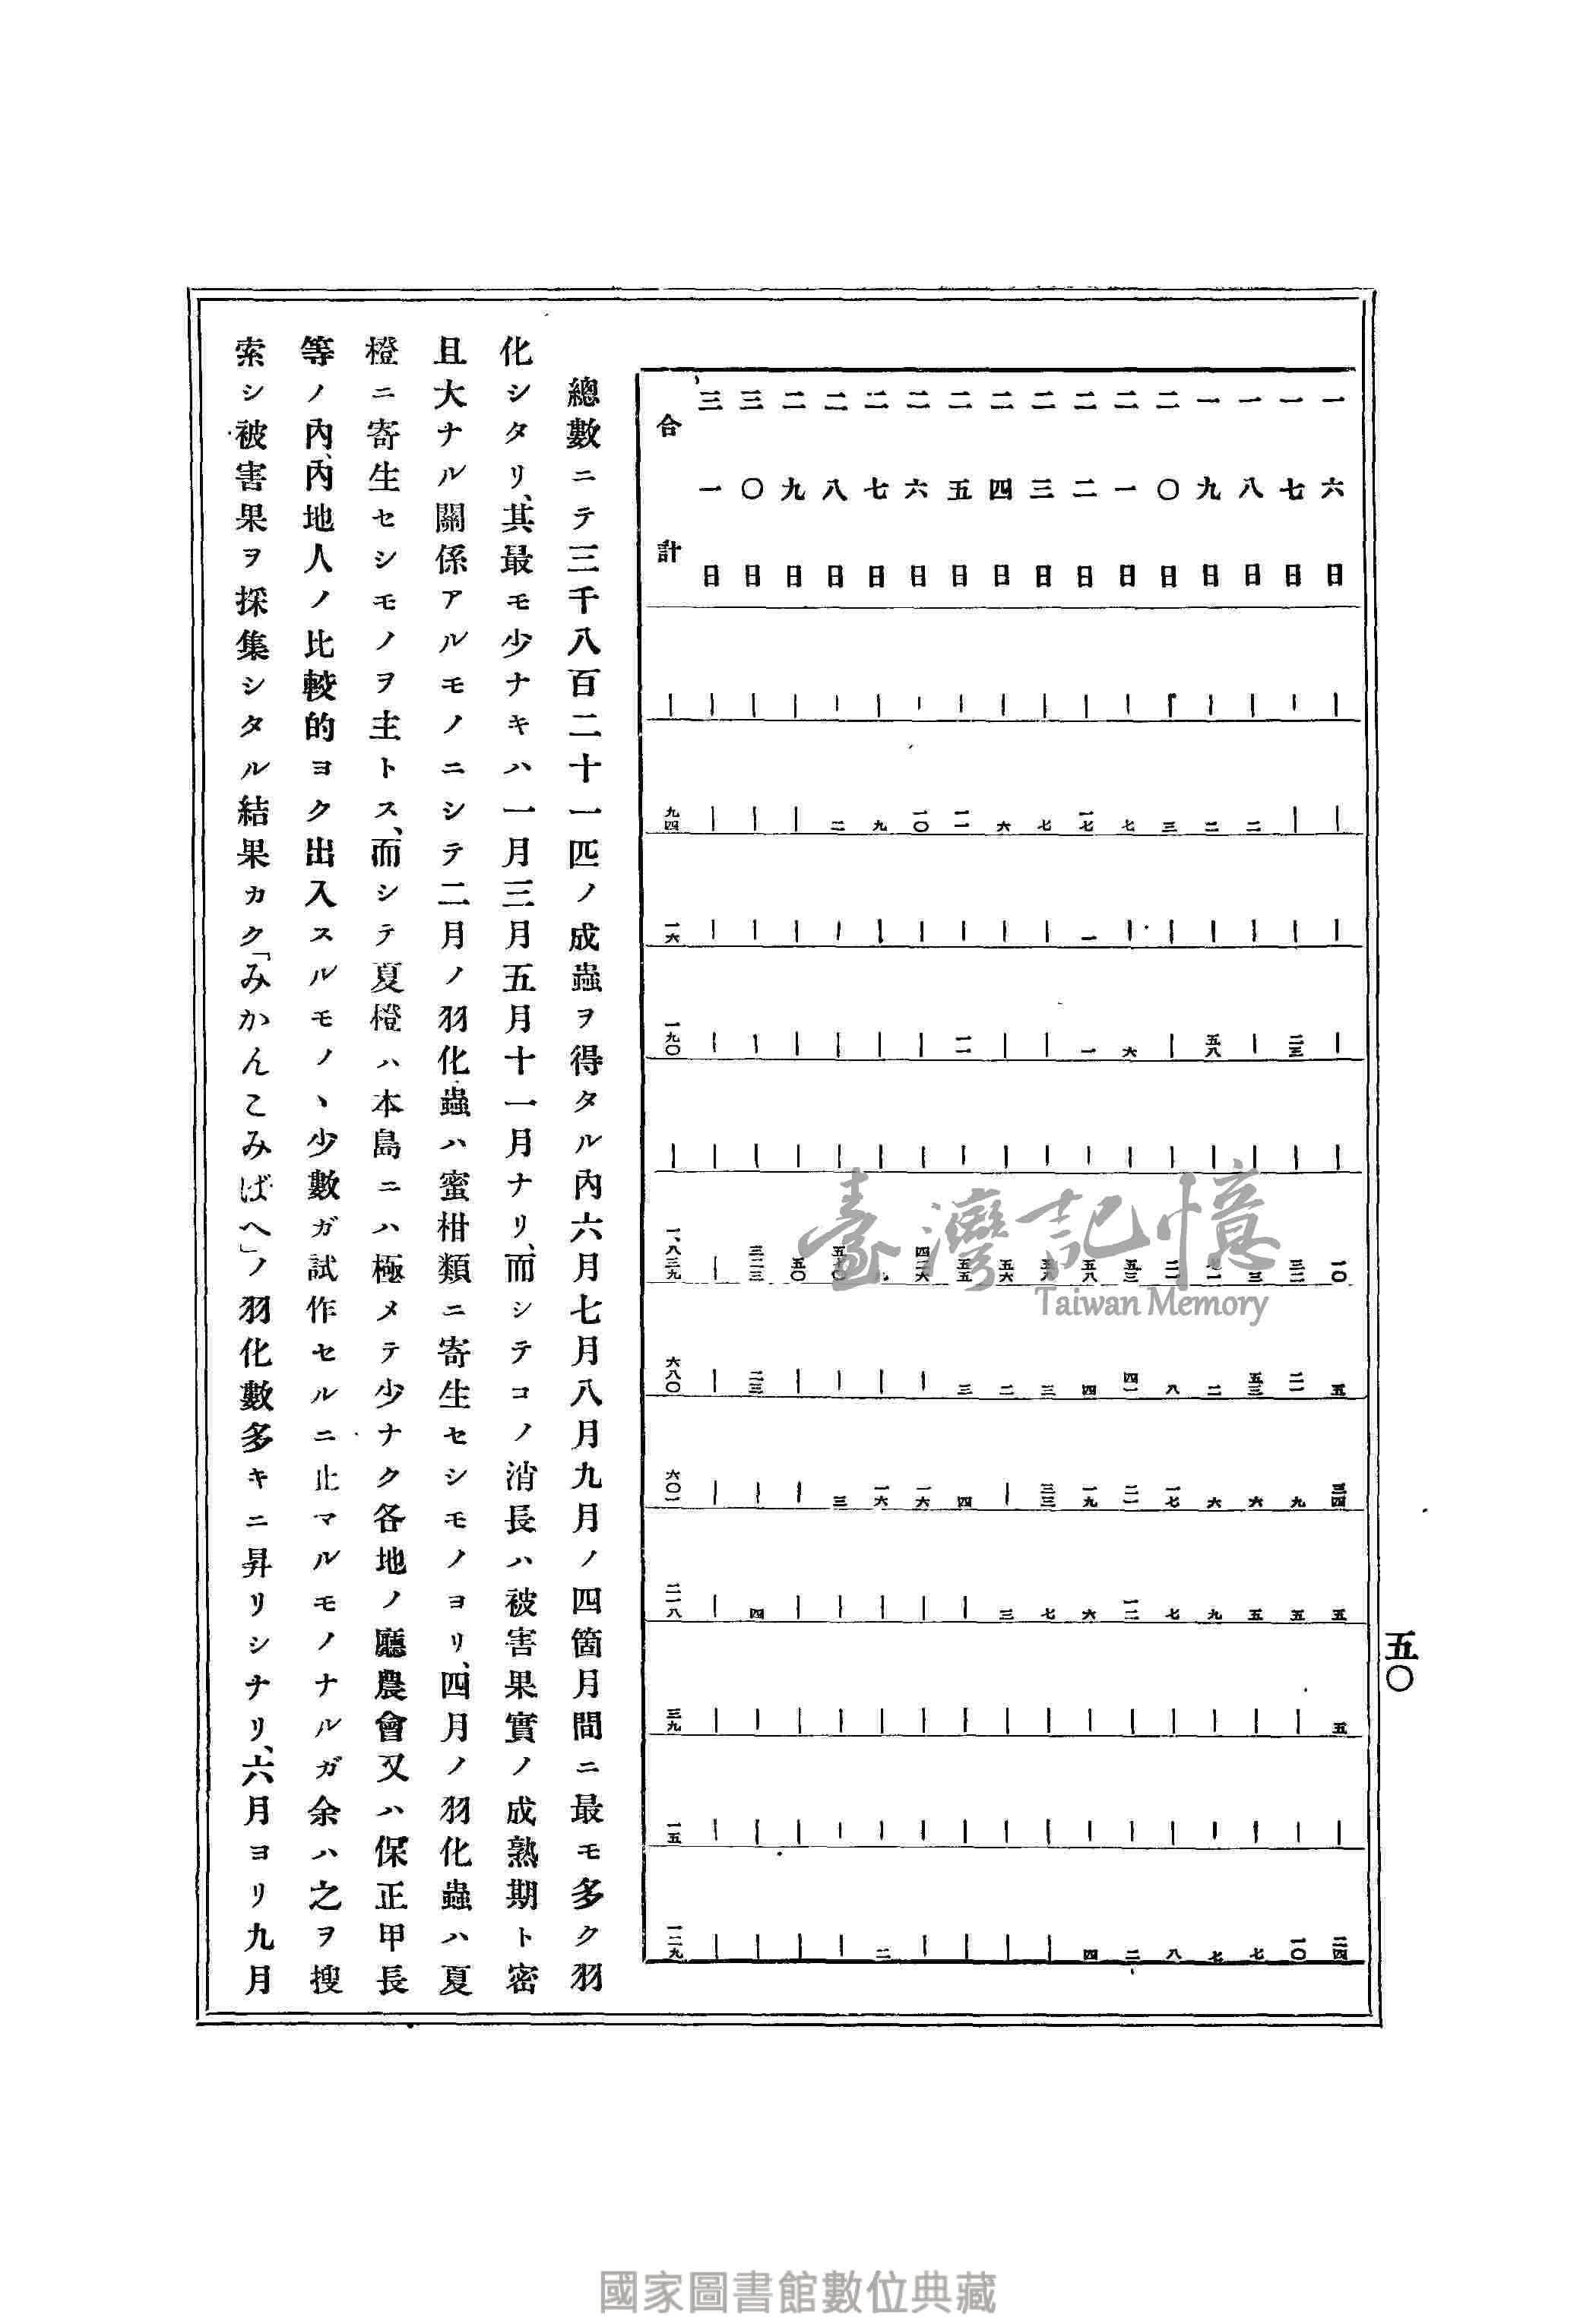 五〇
一六日 ｜ ｜ ｜ ｜ ｜ 一〇 五 三四 五 五 ｜ 二四
一七日 ｜ ｜ ｜ 二三 ｜ 三二 二一 九 五 ｜ ｜ 一〇
一八日 ｜ 二 ｜ ｜ ｜ 三 五三 六 五 ｜ ｜ 七
一九日 ｜ 二 ｜ 五八 ｜ 二 六 九 ｜ ｜ 七
二〇日 ｜ 三 ｜ ｜ ｜ 二二 八 一七 七 ｜ ｜ 八
二一日 ｜ 七 ｜ 六 ｜ 五三 四一 二一 一二 ｜ ｜ 二
二二日 ｜ 一七 一 一 ｜ 五八 四 一九 六 ｜ ｜ 四
二三日 ｜ 七 ｜ ｜ ｜ 三 三三 七 ｜ ｜ ｜
二四日 ｜ 六 ｜ ｜ ｜ 五六 二 ｜ 三 ｜ ｜ ｜
二五日 ｜ 一一 ｜ 一一 ｜ 五五 三 四 ｜ ｜ ｜ ｜
二六日 ｜ 一〇 ｜ ｜ ｜ 四二六 ｜ 一六 ｜ ｜ ｜ ｜
二七日 ｜ 九 ｜ ｜ ｜ ｜ 一六 ｜ ｜ ｜ 二
二八日 ｜ 二 ｜ ｜ ｜ ｜ 三 ｜ ｜ ｜ ｜
二九日 ｜ ｜ ｜ ｜ ｜ 五〇 ｜ ｜ ｜ ｜ ｜ ｜
三〇日 ｜ ｜ ｜ ｜ ｜ 三二三 二三 ｜ 四 ｜ ｜ ｜
三一日 ｜ ｜ ｜ ｜ ｜ ｜ ｜ ｜ ｜ ｜ ｜ ｜
合計 ｜ 九四 一六 一九〇 ｜ 一、八三九 六八〇 六〇一 二一八 三九 一五 一二九
總數ニテ三千八百二十一匹ノ成蟲ヲ得タル內六月七月八月九月ノ四箇月間ニ最モ多ク羽
化シタリ、其最モ少ナキハ一月三月五月十一月ナリ、而シテコノ消長ハ被害果實ノ成熟期ト密
且大ナル關係アルモノニシテ二月ノ羽化蟲ハ蜜柑類ニ寄生セシモノヨリ、四月ノ羽化蟲ハ夏
橙ニ寄生セシモノヲ主トス、而シテ夏橙ハ本島ニハ極メテ少ナク各地ノ廳農會又ハ保正甲長
等ノ內、內地人ノ比較的ヨク出入スルモノヽ少數ガ試作セルニ止マルモノナルガ余ハ之ヲ搜
索シ被害果ヲ採集シタル結果カク「みかんこみばへ」ノ羽化數多キニ昇リシナリ、六月ヨリ九月
臺灣記憶
Taiwan Memory
國家圖書館數位典藏